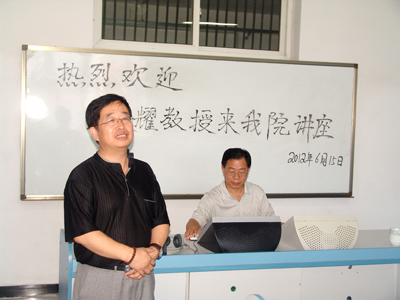 热烈欢迎
耀教授来我院讲座
2012年6月15日